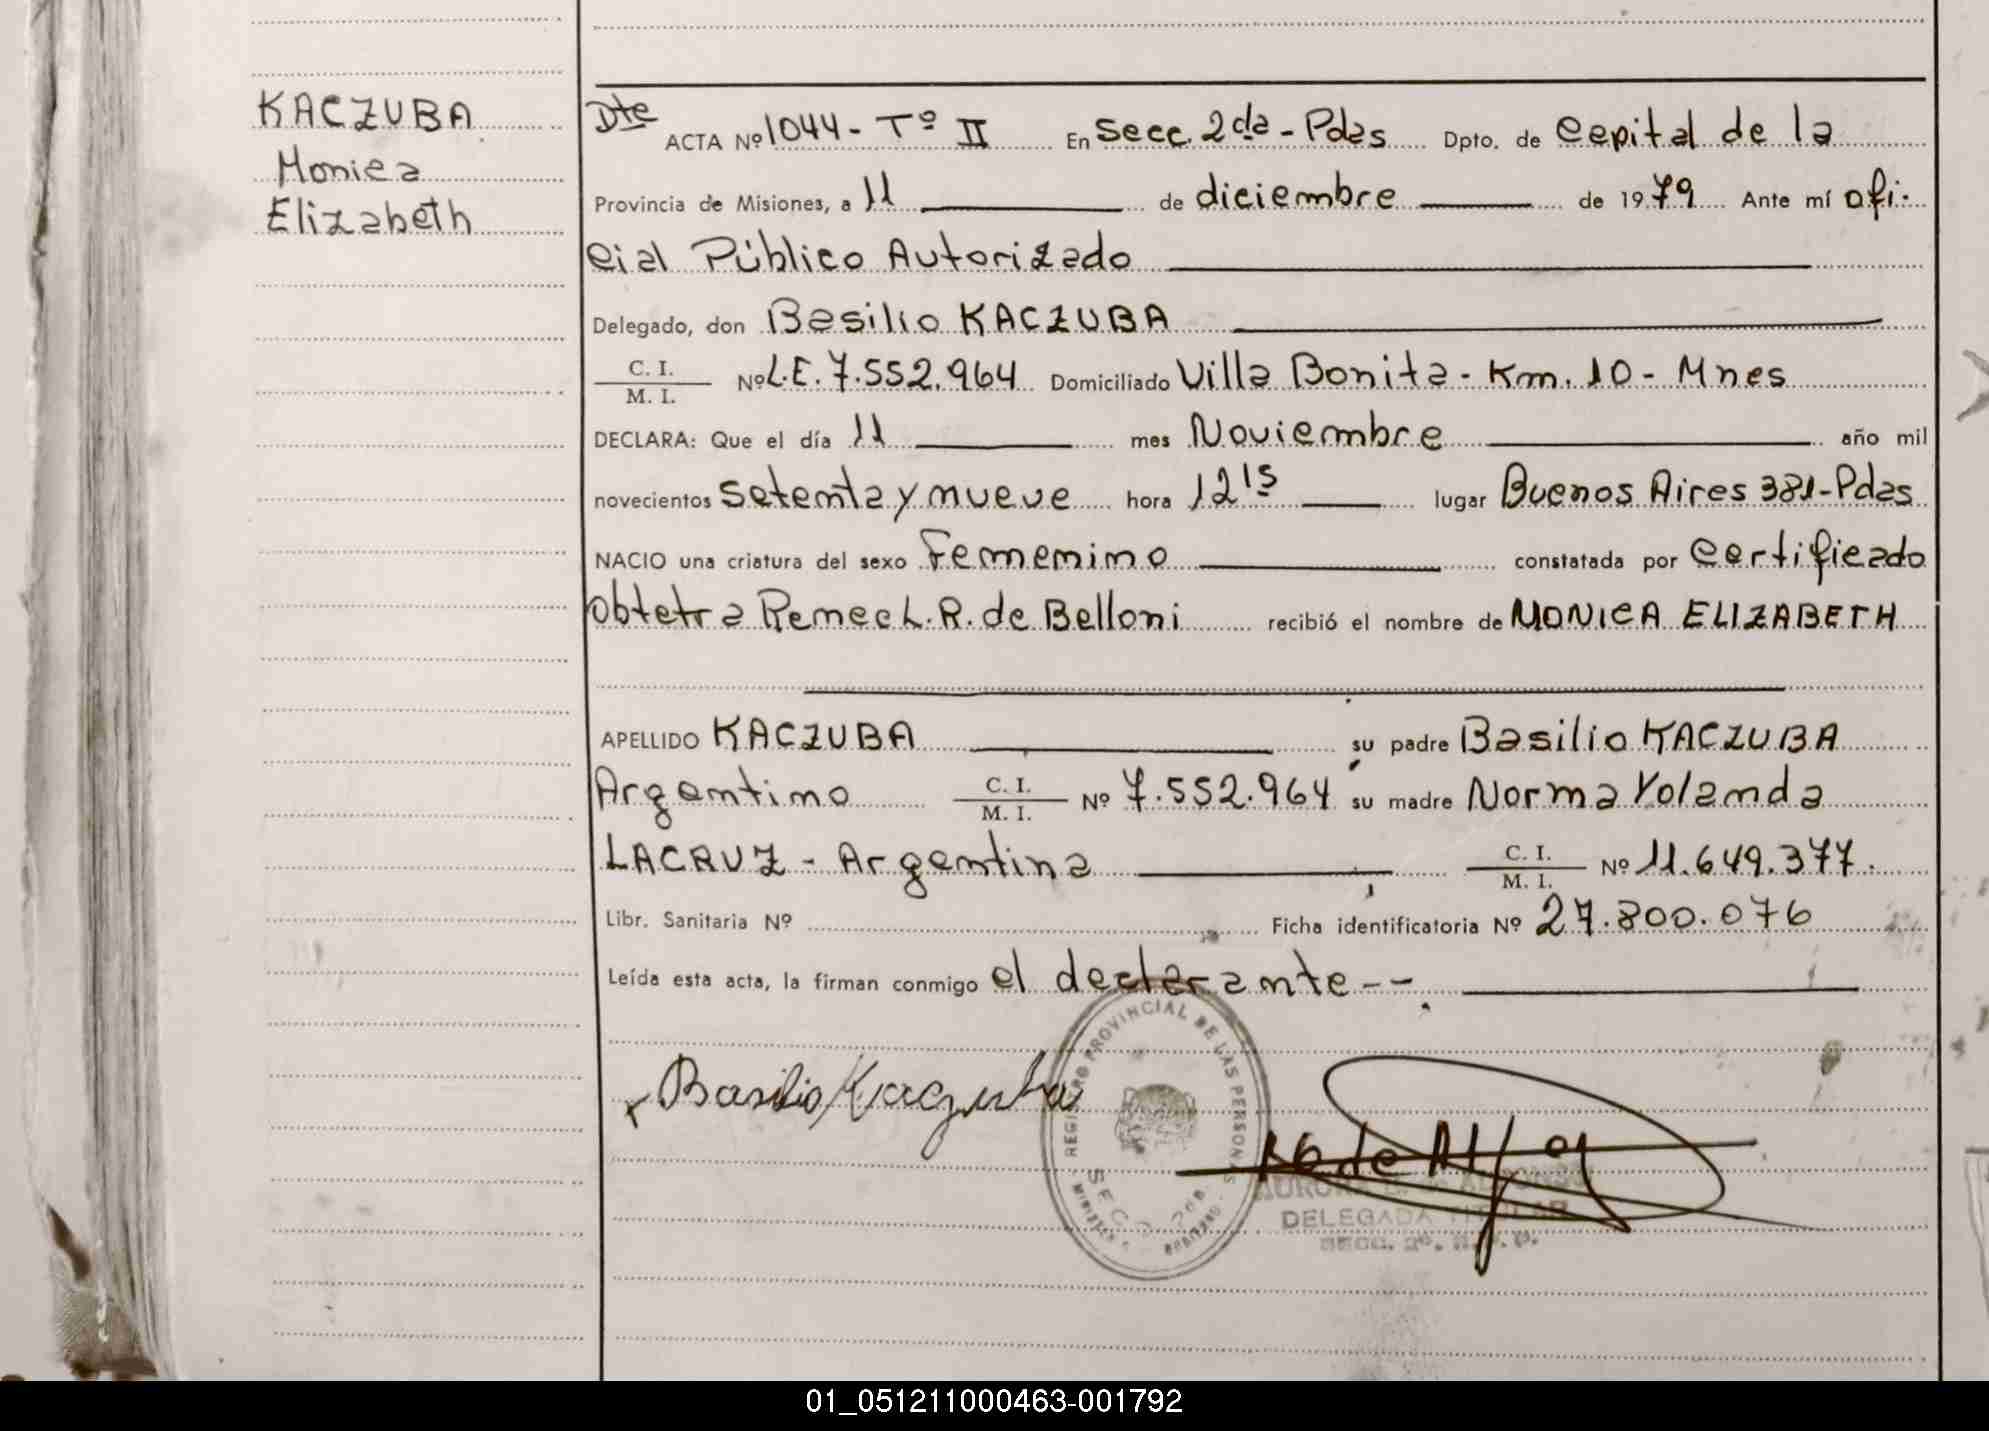 KACZUBA
Monica
Elizabeth
Dte ACTA Nº 1044 - Tº II En Secc. 2da - Pdas Dpto. de Capital de la
Provincia de Misiones, a 11 de diciembre de 1979 Ante mí ofi-
cial Público Autorizado
Delegado, don Basilio KACZUBA
C. I.
M. I. Nº L.E. 7.552.964 Domiciliado Villa Bonita - Km. 10 - Mnes
DECLARA: Que el día 11 mes Noviembre año mil
novecientos setenta y nueve hora 12 15 lugar Buenos Aires 381 - Pdas
NACIO una criatura del sexo Femenino constatada por certificado
Obtetra R. de Belloni recibió el nombre de MONICA ELIZABETH
APELLIDO KACZUBA su padre Basilio KACZUBA
Argentino C. I.
M. I. Nº 7.552.964 su madre Norma Yolanda
LACRUZ - Argentina C. I.
M. I. Nº 11.649.377.
Libr. Sanitaria Nº Ficha identificatoria Nº 27.800.076
Leída esta acta, la firman conmigo el declarante --
x Basilio Kaczuba
REGISTRO PROVINCIAL DE LAS PERSONAS
SECC.
DELEGADA TITULAR
SECC. 2ª.
01_051211000463-001792